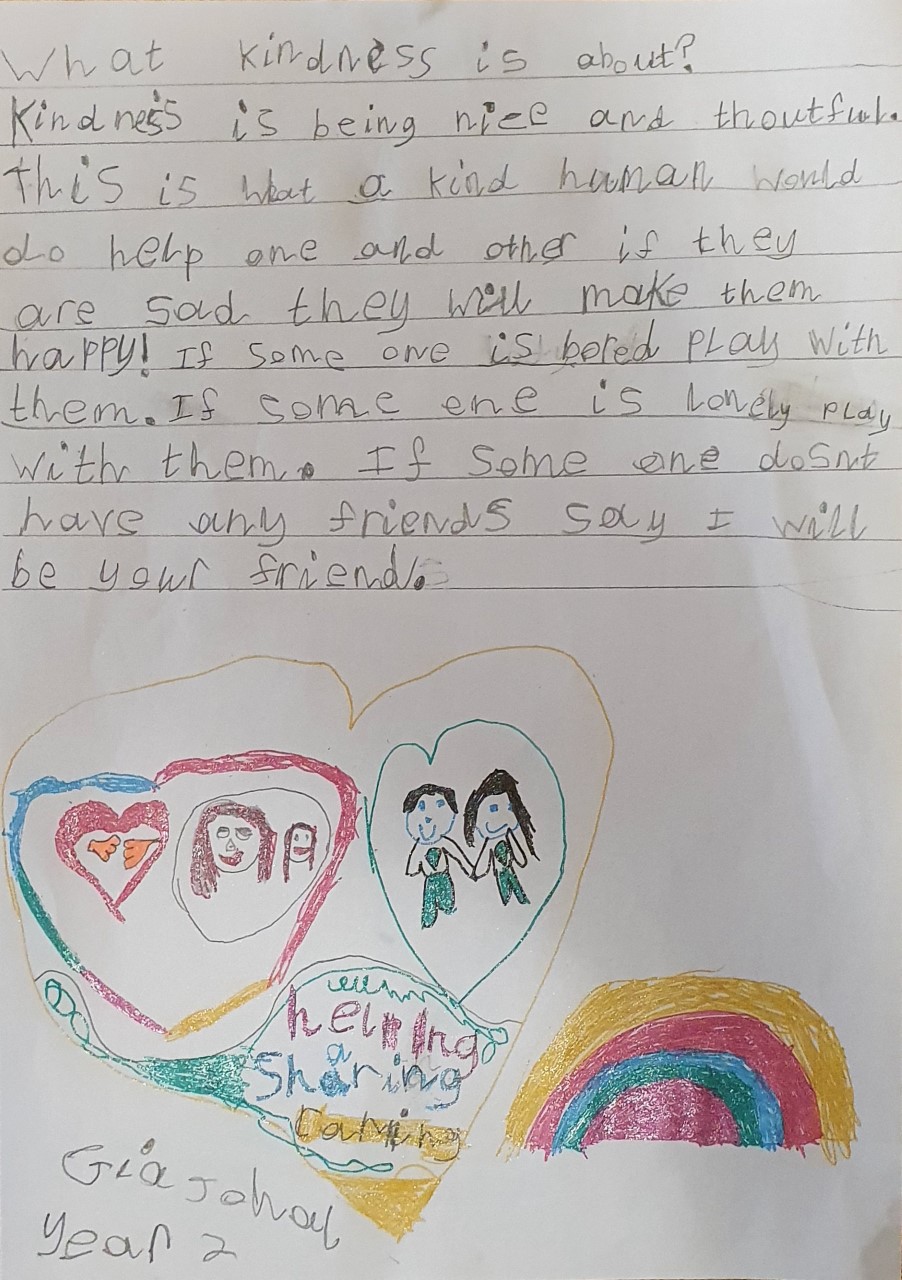 What kindness is about?
Kindness is being nice and thoutful.
This is what a kind human would
do help one and other if they
are sad they will make them
happy! If some one is bored play with
them. If some one is lonely play
with them. If some one dosnt
have any friends say I will
be your friend.
helping
sharing
caring
Gia Johal
Year 2